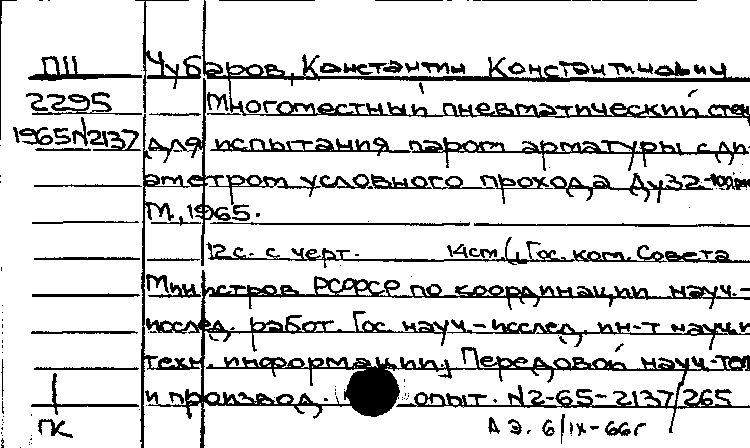 П11 Чубаров, Константин Константинович
2295 Многоместный пневматический стен
1965 N2137 для испытания паром арматуры с ди-
аметром условного прохода Ду32-100мм
М., 1965.
12 с. с черт. 14см. (Гос. ком. Совета
Министров РСФСР по координации науч.-
исслед. работ. Гос. науч.-исслед. ин-т науч. и
техн. информации. Передовой науч.-техн
и производ. опыт. N2-65-2137/265
ГК А Э. 6/IX-66г